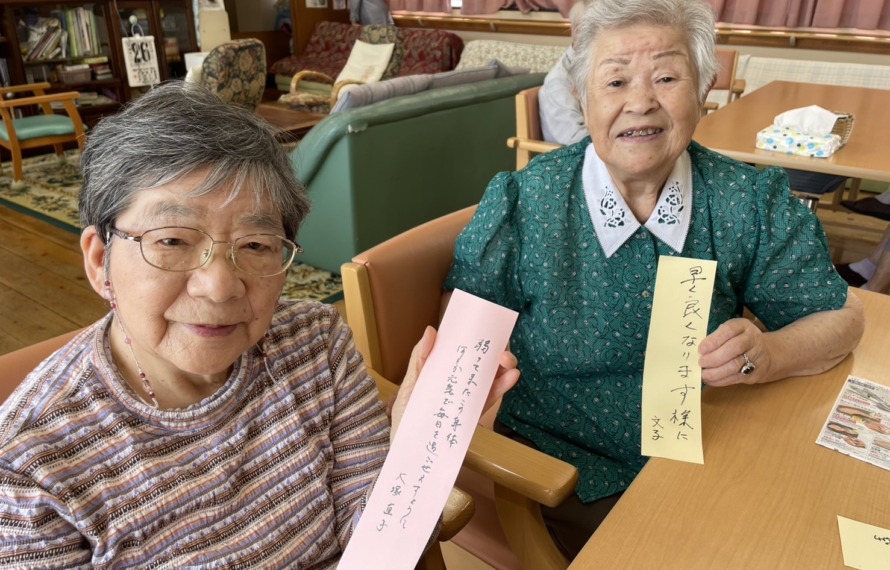 26
弱ってきたこの身体
ほがらか元気で毎日を過ごせますように
大塚 直子
早く良くなります様に
文子